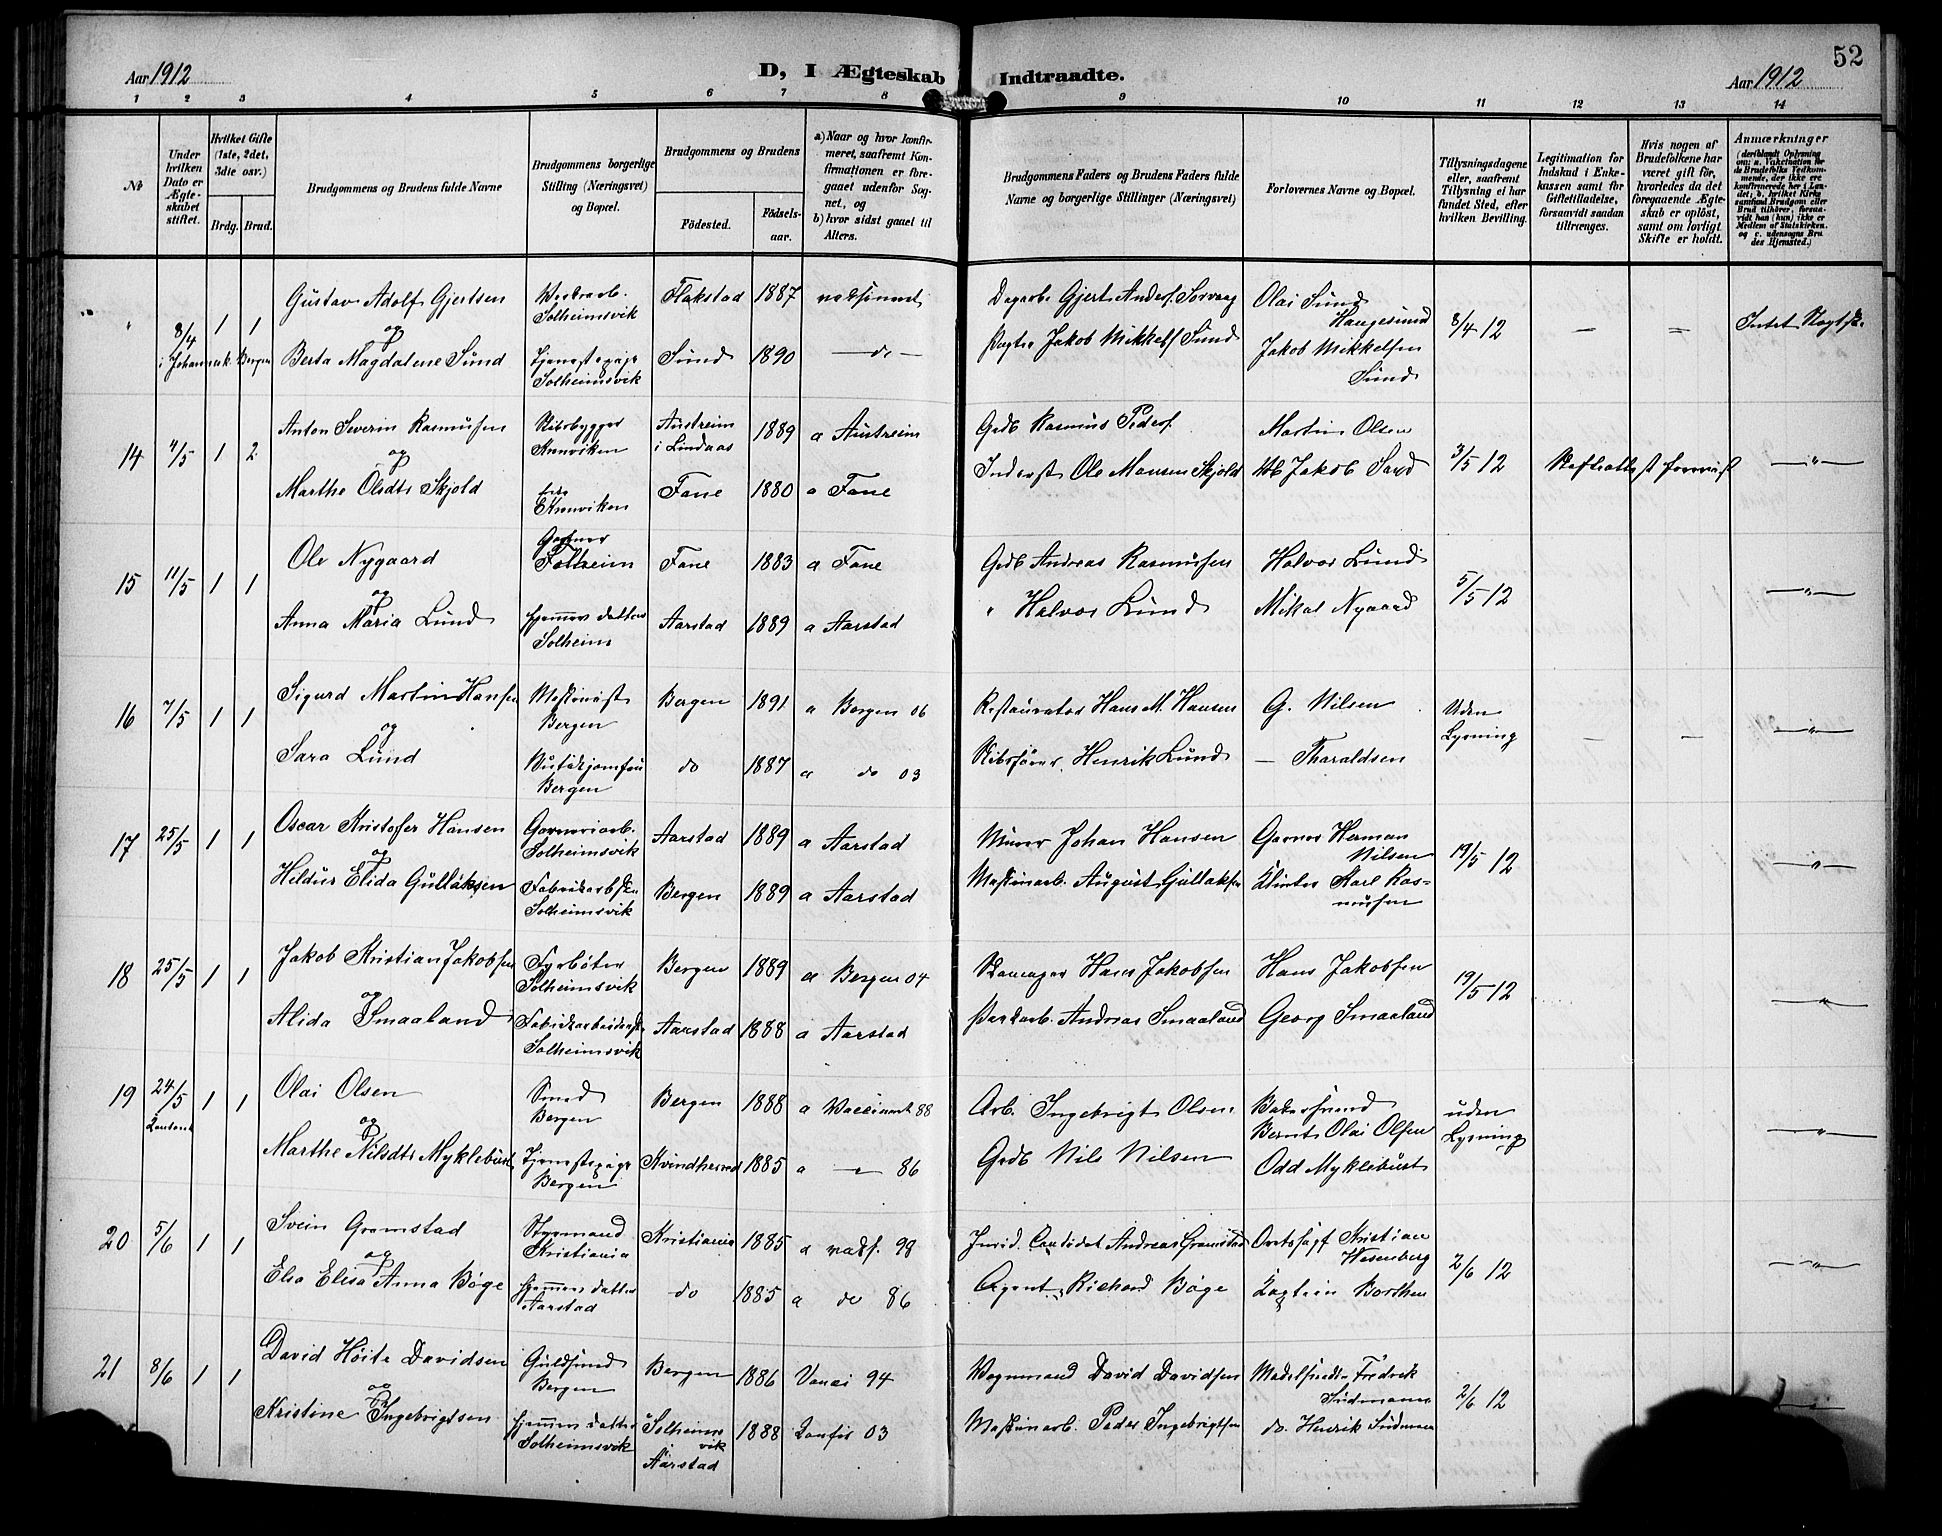 52
Aar 1912
D, I Ægteskab Indtraadte.
Aar 1912
1 2 3 4 5 6 7 8 9 10 11 12 13 14
№
Under hvilken Dato er Ægteskabet stiftet.
Hvilket Gifte (1ste, 2det, 3die osv.)
Brdg. Brud.
Brudgommens og Brudens fulde Navne
Brudgommens borgerlige Stilling (Næringsvei) og Bopæl.
Brudgommens og Brudens
Fødested.
Fødselsaar.
a) Naar og hvor konfirmeret, saafremt Konfirmationen er foregaaet udenfor Sognet, og
b) hvor sidst gaaet til Alters.
Brudgommens Faders og Brudens Faders fulde Navne og borgerlige Stillinger (Næringsvei)
Forlovernes Navne og Bopæl.
Tillysningsdagene eller, saafremt Tillysning ei har fundet Sted, efter hvilken Bevilling.
Legitimation for Indskud i Enkekassen samt for Giftetilladelse, forsaavidt saadan tiltrænges.
Hvis nogen af Brudefolkene har været gift før, hvorledes da det foregaaende Ægteskab er opløst, samt om lovligt Skifte er holdt.
Anmærkninger
(deriblandt Oplysning om: a. Vakcination for de Brudefolks Vedkommende, der ikke ere konfirmerede her i Landet; b. hvilket Kirkesamfund Brudgom eller Brud tilhører, forsaavidt han (hun) ikke er Medlem af Statskirken, og c. udensogns Brudes Hjemsted.)
" 8/4 1 1 Gustav Adolf Gjertsen
Solheimsvik Flakstad 1887
Gjert Anders. Olai Sund Haugesund 8/4 12 — " Intet
i Johannesk. Bergen
og
Berta Magdalene Sund Tjenestepige Solheimsvik Sund 1890 — do —
Jakob Mikkels. Sund Jakob Mikkelsen Sund
14 4/5 1 2 Anton Severin Rasmussen Austreim i Lindaas 1889 a Austreim
Gdb Rasmus Peders. Martin Olsen 3/5 12 Skifteattest forevist — " —
og
Marthe Olsdtr Skjold Fane 1880 a Fane
Inderst Ole Monsen Skjold Jakob Sand
15 11/5 1 1 Ole Nygaard Gartner Fane 1883 a Fane
Gdb Andreas Rasmussen Halvor Lund 5/5 12 — " —
og
Anna Maria Lund Hjemmev. datter Solheim Aarstad 1889 a Aarstad
" Halvor Lund Mikal Nygaard
16 7/5 1 1 Sigurd Martin Hansen Maskinist Bergen Bergen 1891 a Bergen 06
Restauratør Hans M. Hansen G. Nilsen Uden Lysning — — — " —
og
Sara Lund Butikjomfru Bergen do 1887 a do 03
Skibsfører Henrik Lund — Tharaldsen
17 25/5 1 1 Oscar Kristofer Hansen Solheimsvik Aarstad 1889 a Aarstad
Murer Johan Hansen Garver Herman Nilsen 19/5 12 — " —
og
Hildur Elida Gullaksen Fabrikarbske Solheimsvik Bergen 1889 a Aarstad
Maskinarb. August Gullaksen Karl Rasmussen
18 25/5 1 1 Jakob Kristian Jakobsen Fyrbøter Solheimsvik Bergen 1889 a Bergen 04
Hans Jakobsen Hans Jakobsen 19/5 12 — " —
og
Alida Smaaland Fabrikarbeiderske Solheimsvik Aarstad 1888 a Aarstad
Andreas Smaaland Georg Smaaland
19 24/5 1 1 Olai Olsen Smed Bergen Bergen 1888 a Vaccineret 88
Arb. Ingebrigt Olsen Bernt Olai Olsen uden Lysning — " —
og
Marthe Nilsdtr Myklebust Tjenestepige Bergen Kvindherred 1885 a — " — 86
Gdb Nils Nilsen Odd Myklebust
20 5/6 1 1 Svein Gramstad Styrmand Kristiania Kristiania 1885 a vaks. 98
Andreas Gramstad Kristian Wesenberg 2/6 12 — " —
og
Elsa Elisa Anna Bøge Hjemmev. datter Aarstad do 1885 a do 86
Agent Richard Bøge Kaptein Borthen
21 8/6 1 1 David Høite Davidsen Guldsmed Bergen Bergen 1886 Vacci 94
Vognmand David Davidsen Fredrik Sudmann 2/6 12
og
Kristine Ingebrigtsen Hjemmev. datter Solheimsvik Solheimsvik i Aarstad 1888 Konfir 03
Maskinarb. Peder Ingebrigtsen do. Henrik Sudmann